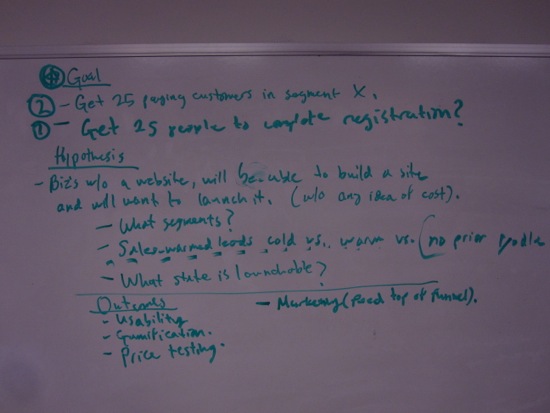 Goal
② - Get 25 paying customers in segment X.
① - Get 25 people to complete registration?
Hypothesis
- Biz's w/o a website, will be able to build a site
and will want to launch it. (w/o any idea of cost).
- What segments?
- Sales-warmed leads cold vs. warm vs. (no prior
- What state is launchable?
Outcomes
- Marketing (feed top of funnel).
- Usability
- Gamification.
- Price testing.